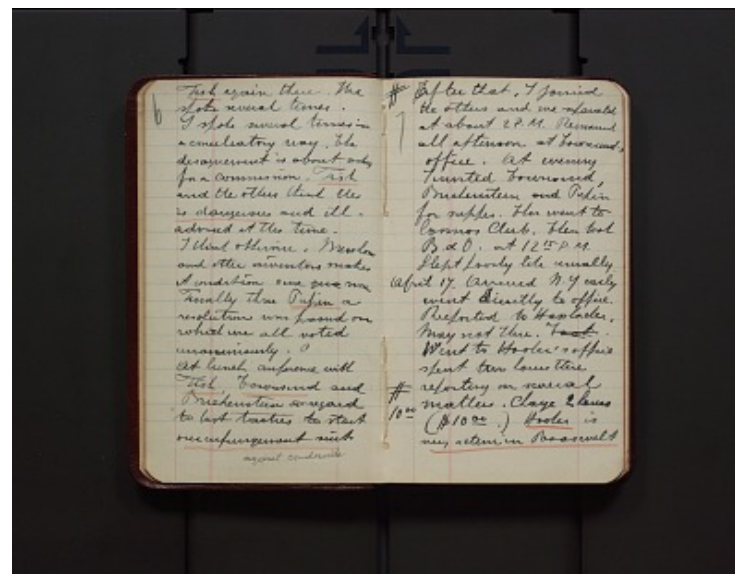 6
Fish again there. He
spoke several times.
I spoke several times in
a conciliatory way. The
disagreement is about asking
for a commission. Fish
and the others think this
is dangerous and ill-
advised at this time.
I think otherwise.
and other inventors makes
it condition sine qua non
Finally thru Pupin a
resolution was passed on
which we all voted
unanimously.
At lunch conference with
Fish, Townsend and
in regard
to best tactics to start
our infringement suit
against
7
After that, I joined
the others and we separated
at about 2 P.M. Remained
all afternoon at Townsend's
office. At evening
Invited Townsend,
and Pupin
for supper. Then went to
Cosmos Club. Then took
B & O. at 12 P.M.
Slept poorly like usually
April 17. Arrived N.Y early
went directly to office.
Reported to Hasslacher.
May not there.
Went to Hooker's office
spent two hours there
reporting on several
matters. Charge 2 hours
# 10 00
($10 00.) Hooker is
very active in Roosevelt